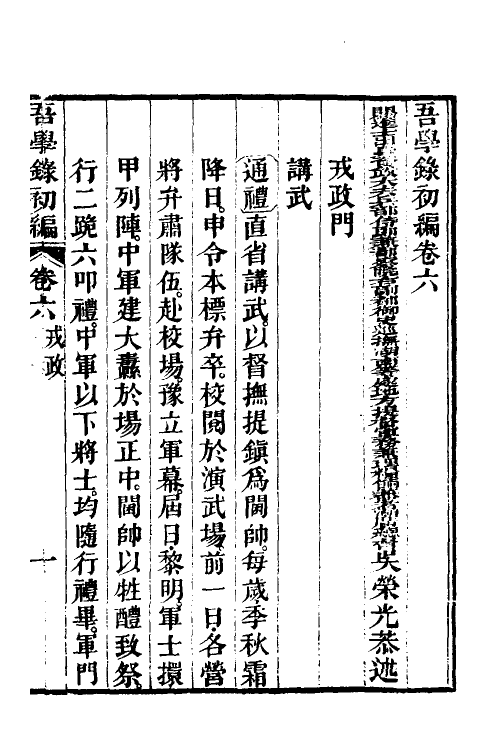 吾學錄初編卷六
吳榮光恭述
戎政門
講武
通禮直省講武以督撫提鎮爲閫帥每歲季秋霜
降日申令本標弁卒校閱於演武場前一日各營
將弁肅隊伍赴校場豫立軍幕屆日黎明軍士擐
甲列陣中軍建大纛於場正中閫帥以牲醴致祭
行二跪六叩禮中軍以下將士均隨行禮畢軍門
吾學錄初編 卷六 戎政 一